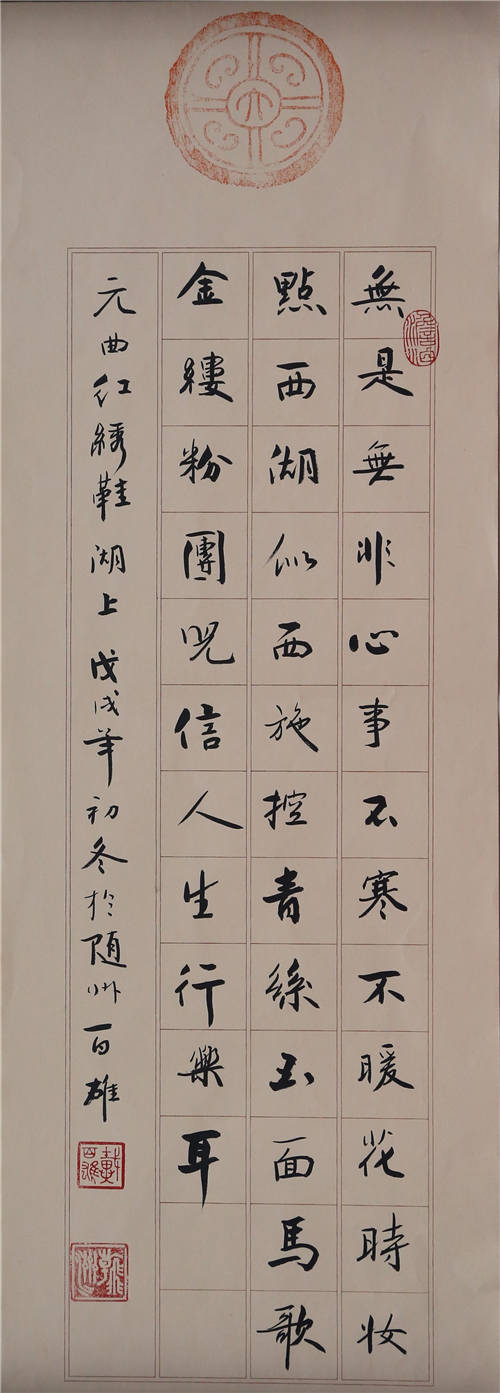 無是無非心事不寒不暖花時妝
點西湖似西施控青絲玉面馬歌
金縷粉團兒信人生行樂耳
元曲红綉鞋湖上 戊戌年初冬於随州百雄